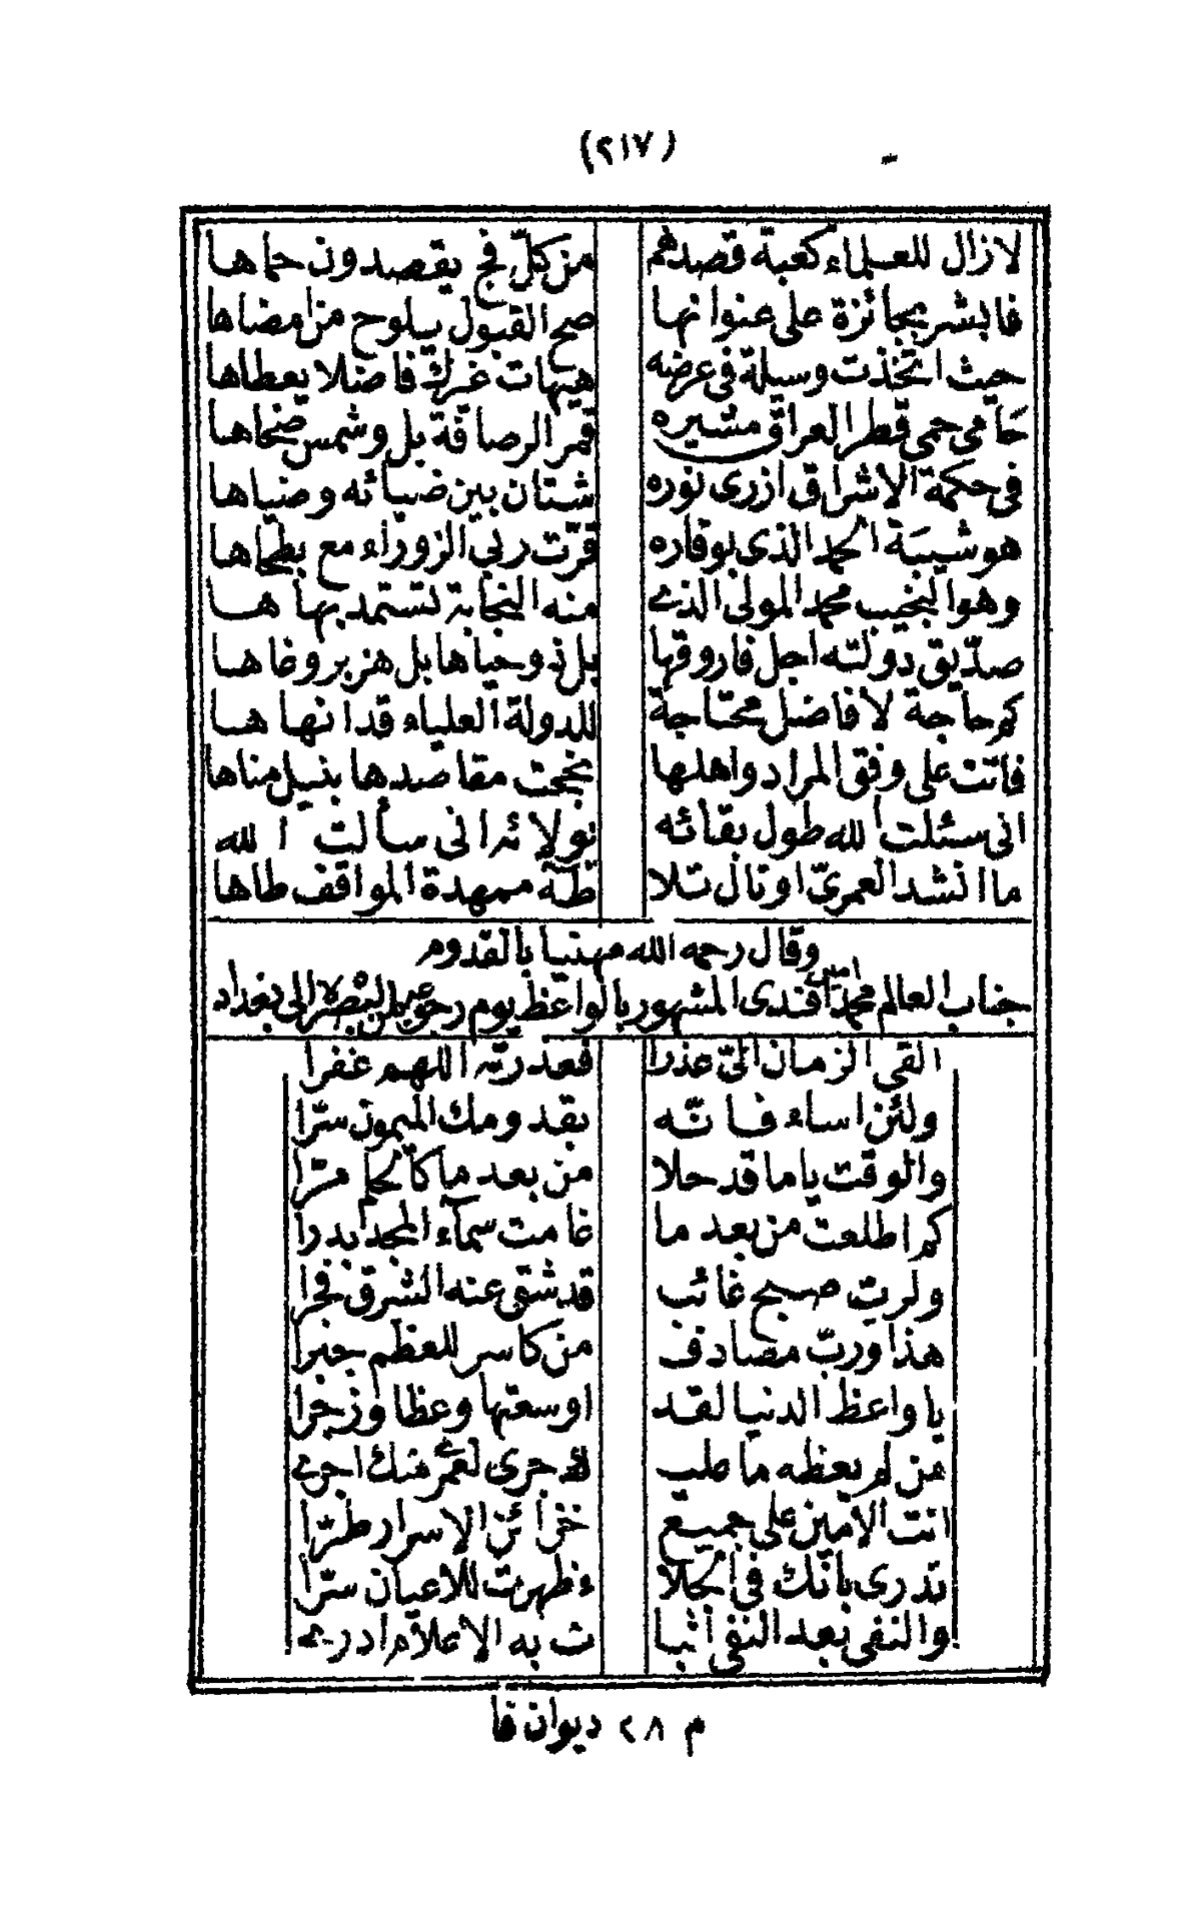 (٢١٧)
لازال للعلماء كعبة قصدهم من كلّ فج يقصدون حماها
فابشر بجائزة على عنوانها صح القبول يلوح من امضاها
حيث اتخذت وسيلة في عرضه هيهات غيرك فاضلا يعطاها
حامي حمى قطر العراق مشيره قمر الرصافة بل وشمس ضحاها
في حكمة الاشراق ازرى نوره شتان بين ضيائه وضياها
هو شيبة الحمد الذي بوقاره قرّت ربى الزوراء مع بطحاها
وهو النجيب محمد المولى الذي منه النجابة تستمد بهاها
صدّيق دولته اجل فاروقها بل نه وحياها بل هزبر وغاها
كم حاجة لا فاضل محتاجة للدولة العلياء قد انهاها
فاتت على وفق المراد واهلها نجحت مقاصدها بنيل مناها
اني سئلت الله طول بقائه تولائه اني سألت الله
ما انشد العمريّ او تال تلا طه ممهدة المواقف طاها
وقال رحمه الله مهنيا بالقدوم
جناب العالم محمد امين افندى المشهور بالواعظ يوم رجوعه من البصرة الى بغداد
القى الزمان اليّ عذرا فعد ربّه اللهم غفرا
ولئن اساء فانّه بقدومك الميمون سرّا
والوقت ياما قد حلا من بعد ما كالحا مرّا
كم اطلعت من بعد ما غامت سماء المجد بدرا
ولرب صبح غائب قد شق عنه الشرق فجرا
هذا وربّ مصادف من كاسر للعظم جبرا
يا واعظ الدنيا لقد اوسعتها وعظا وزجرا
من لم يعظه ما طب لله جرى لعمرى منك اجرى
انت الامين على جميع خزائن الاسرار طرّا
تدرى بانّك في الحلا ء ظهرت للاعيان سرّا
والنفي بعد النفي اثبا ت به الاعلام ادرى
م ٢٨ ديوان فا